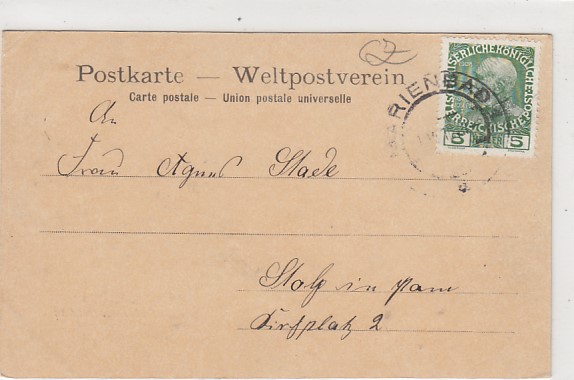 Postkarte — Weltpostverein
Carte postale — Union postale universelle
KAISERLICHE KÖNIGLICHE
ÖSTERREICHISCHE POST
5 5
RIENBAD
An
Frau Agnes Stade
Stolp in Pom
Kirchplatz 2